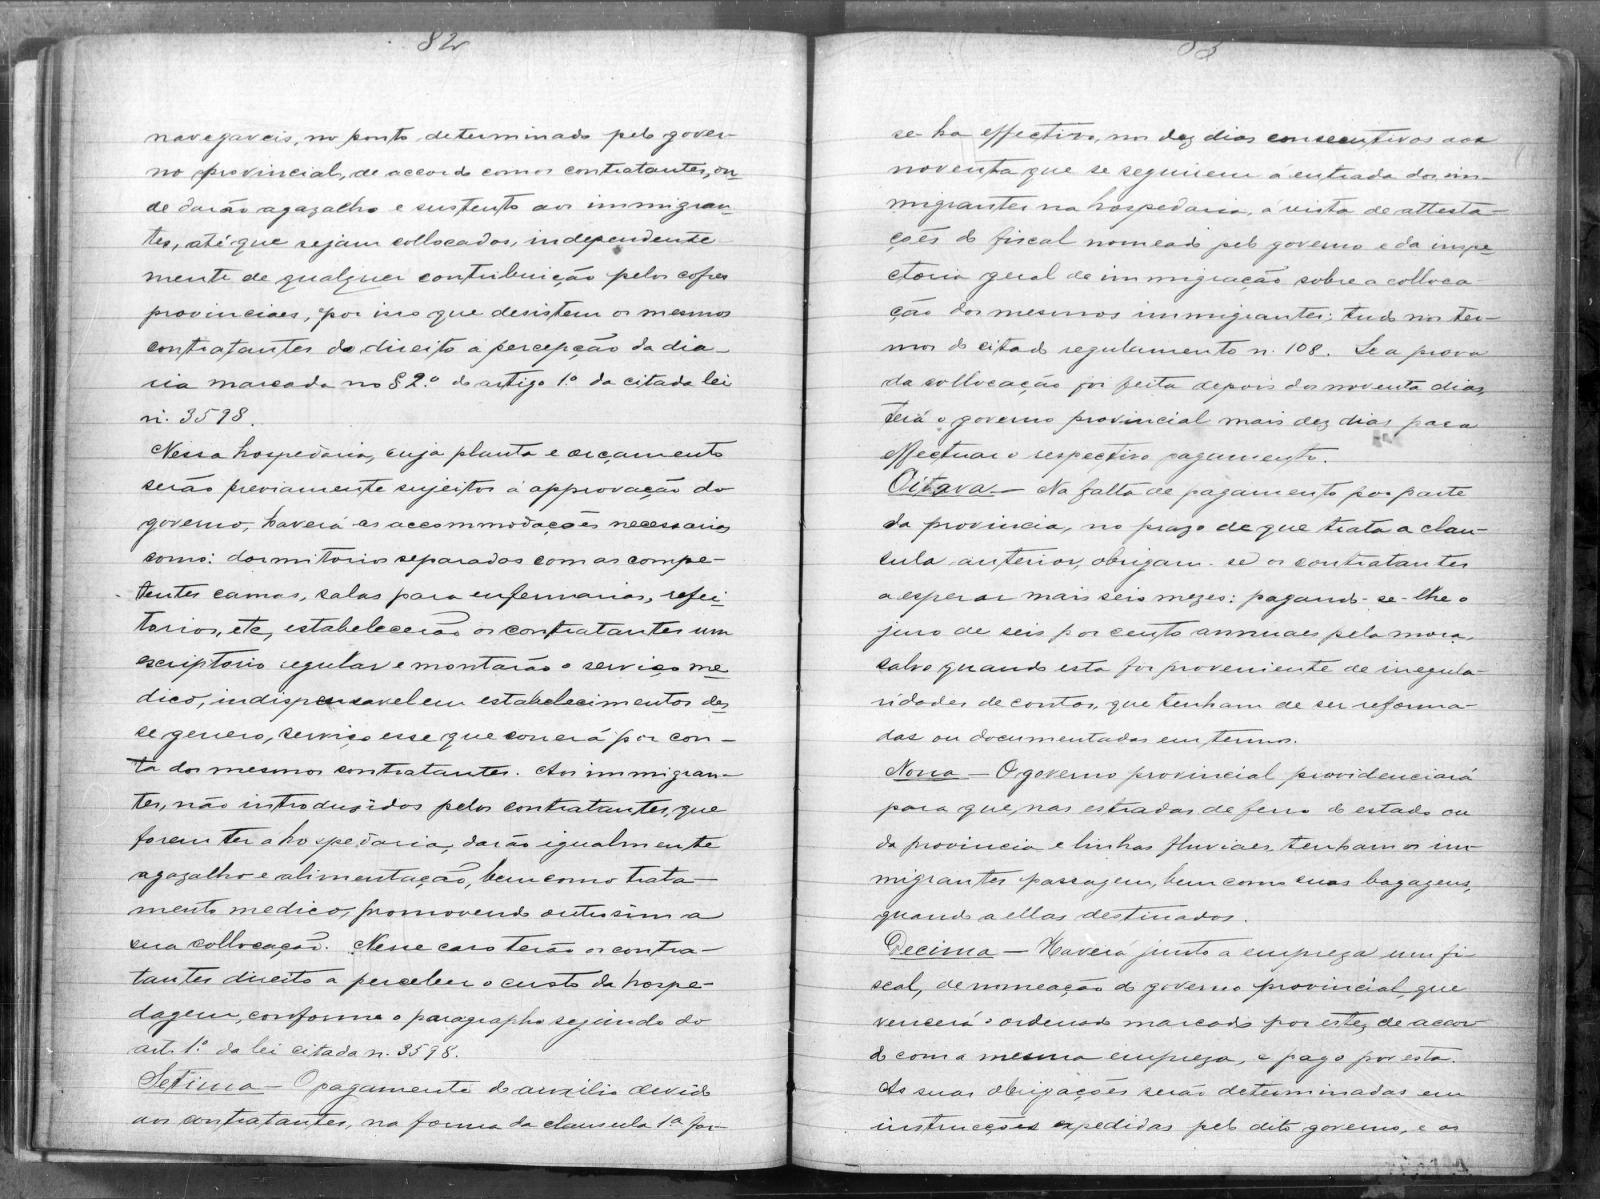 82
navegaveis, no ponto determinado pelo gover-
no provincial, de accordo com os contratantes, on-
de darão agazalho e sustento aos immigran-
tes, até que sejam collocados, independente
mente de qualquer contribuição pelos cofres
provinciaes, por isso que desistem os mesmos
contratantes do direito á percepção da dia-
ria marcada no § 2.º do artigo 1.º da citada lei
n. 3598.
Nessa hospedaria, cuja planta e orçamento
serão previamente sujeitos á approvação do
governo, haverá as accommodações necessarias
como: dormitorios separados com as compe-
tentes camas, salas para enfermarias, refei-
torios, etc, estabelecerão os contratantes um
escriptorio regular e montarão o serviço me-
dico, indispensavel em estabelecimentos des-
se genero, serviço esse que correrá por con-
ta dos mesmos contratantes. Aos immigran-
tes, não introduzidos pelos contratantes, que
forem ter a hospedaria, darão igualmente
agazalho e alimentação, bem como trata-
mento medico, promovendo outrosim a
sua collocação. Nesse caso terão os contra-
tantes direito a perceber o custo da hospe-
dagem, conforme o paragrapho segundo do
art. 1.º da lei citada n. 3598.
Setima - O pagamento do auxilio devido
aos contratantes, na forma da clausula 1ª far-
83
se-ha effectivo, nos dez dias consecutivos aos
noventa que se seguirem á entrada dos im-
migrantes na hospedaria, á vista de attesta-
ções do fiscal nomeado pelo governo e da inspe-
ctoria geral de immigração sobre a colloca-
ção dos mesmos immigrantes; tudo nos ter-
mos do citado regulamento n. 108. Se a prova
da collocação foi feita depois dos noventa dias,
terá o governo provincial mais dez dias para
effectuar o respectivo pagamento.
Oitava - Na falta de pagamento por parte
da provincia, no prazo de que trata a clau-
sula anterior, obrigam-se os contratantes
a esperar mais seis mezes: pagando-se-lhe o
juro de seis por cento annuaes pela mora,
salvo quando esta for proveniente de irregula-
ridades de contas, que tenham de ser reforma-
das ou documentadas em termos.
Nona - O governo provincial providenciará
para que, nas estradas de ferro do estado ou
da provincia e linhas fluviaes, tenham os im-
migrantes passagem, bem como suas bagagens,
quando a ellas destinados.
Decima - Haverá junto a empreza um fi-
scal, de nomeação do governo provincial, que
vencerá o ordenado marcado por este, de accor-
do com a mesma empreza, e pago por esta.
As suas obrigações serão determinadas em
instrucções expedidas pelo dito governo, e os